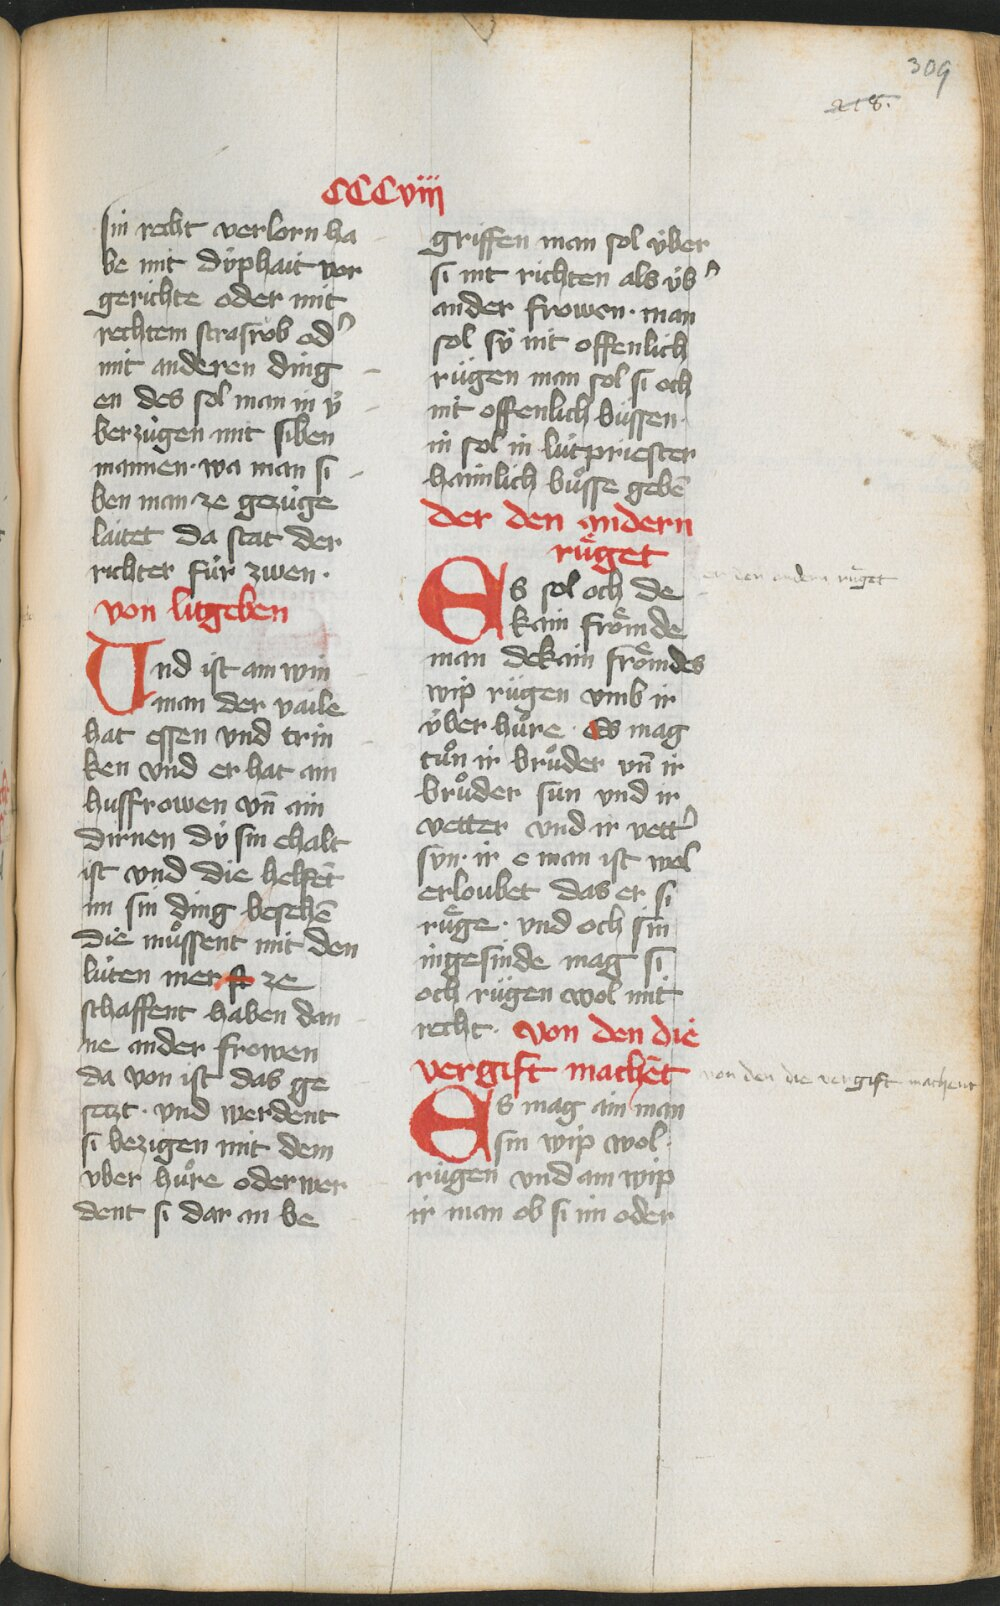 309
218.
CCCviij
sin recht verlorn ha
be mit dÿphait vor
gerichte oder mit
rechtem strasrob od'
mit anderen ding
en des sol man in ÿ
berzúgen mit siben
mannen· wa man si
ben man ze gezúge
laitet da stat der
richter fúr zwen·
von litgeben
Und ist am win
man der vaile
hat essen vnd trin
ken vnd er hat ain
husfrowen vn̄ ain
dirnen dÿ sin ehalt
ist vnd die helfēt
im sin ding besehē
die muͦssent mit den
lúten mer ze
schaffent haben dan
ne ander frowen
da von ist das ge
setzt· vnd werdent
si bezigen mit dem
vber huͦre oder wer
dent si dar an be
griffen man sol ÿber
si nit richten als ÿb'
ander frowen· man
sol sÿ nit offenlich
rúgen man sol si och
nit offenlich bússen·
in sol in lútpriester
haimlich buͦsse gebē
der den andern
ruͤget
Es sol och de
kain froͤmde
man dekain froͤmdes
wip rúgen vmb ir
ÿber huͦre· es mag
tuͦn ir bruͦder vn̄ ir
bruͦder sun vnd ir
vetter vnd ir vett'
sun· ir e man ist wol
erloubet das er si
ruͤge· vnd och sin
ingesinde mag si
och rúgen wol mit
recht· von den die
vergift machēt
Es mag ain man
sin wip wol·
rúgen vnd ain wip
ir man ob si im oder
der den andern ruͤget
von den die vergift machent